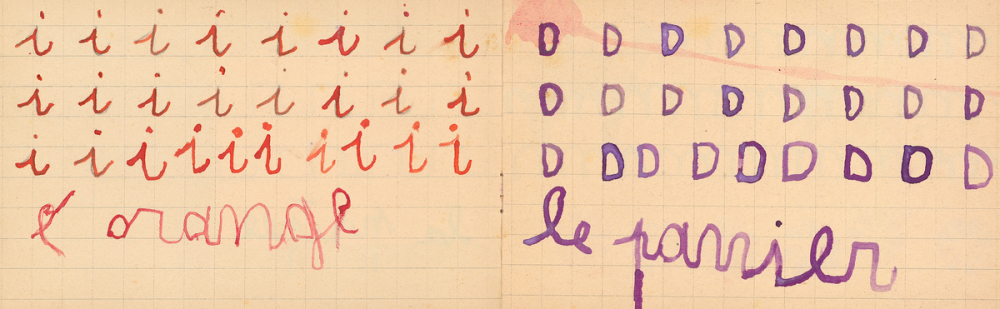 i i i i i i i i
i i i i i i i i
i i i i i i i i i i
l' orange
D D D D D D D D
D D D D D D D D
D D D D D D D D D
le panier